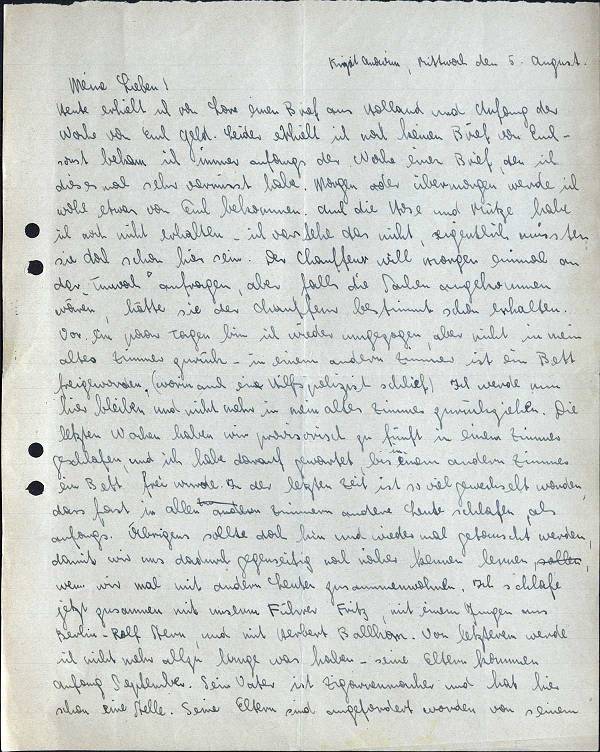 Kirjat Anavim, Mittwoch den 5. August.
Meine Lieben!
Heute erhielt ich von Lore einen Brief aus Holland und Anfang der
Woche von Euch Geld. Leider erhielt ich noch keinen Brief von Euch -
sonst bekam ich immer anfangs der Woche einen Brief, den ich
dieses mal sehr vermisst habe. Morgen oder übermorgen werde ich
wohl etwas von Euch bekommen. Auch die Hose und Mütze habe
ich noch nicht erhalten - ich verstehe das nicht, eigentlich müssten
sie doch schon hier sein. Der Chauffeur will morgen einmal an
der "Tnuvah" anfragen, aber falls die Sachen angekommen
wären, hätte sie der Chauffeur bestimmt schon erhalten.
Vor ein paar Tagen bin ich wieder umgezogen, aber nicht in mein
altes Zimmer zurück - in einem andern Zimmer ist ein Bett
freigeworden, (worin auch ein Hilfspolizist schlief) Ich werde nun
hier bleiben und nicht mehr in mein altes Zimmer zurückziehen. Die
letzten Wochen haben wir provisorisch zu fünft in einem Zimmer
geschlafen, und ich habe darauf gewartet, bis in einem andern Zimmer
ein Bett frei wurde. In der letzten Zeit ist so viel gewechselt worden,
dass fast in allen andern Zimmern andere Leute schlafen als
anfangs. Übrigens sollte doch hin und wieder mal getauscht werden,
damit wir uns dadurch gegenseitig noch näher kennen lernen, sollen,
wenn wir mal mit andern Leuten zusammenwohnen. Ich schlafe
jetzt zusammen mit unserm Führer Fritz, mit einem Jungen aus
Berlin - Rolf Stern, und mit Herbert Ballhorn. Von letzterem werde
ich nicht mehr allzu lange was haben - seine Eltern kommen
anfang September. Sein Vater ist Zigarrenmacher und hat hier
schon eine Stelle. Seine Eltern sind angefordert worden von seinem